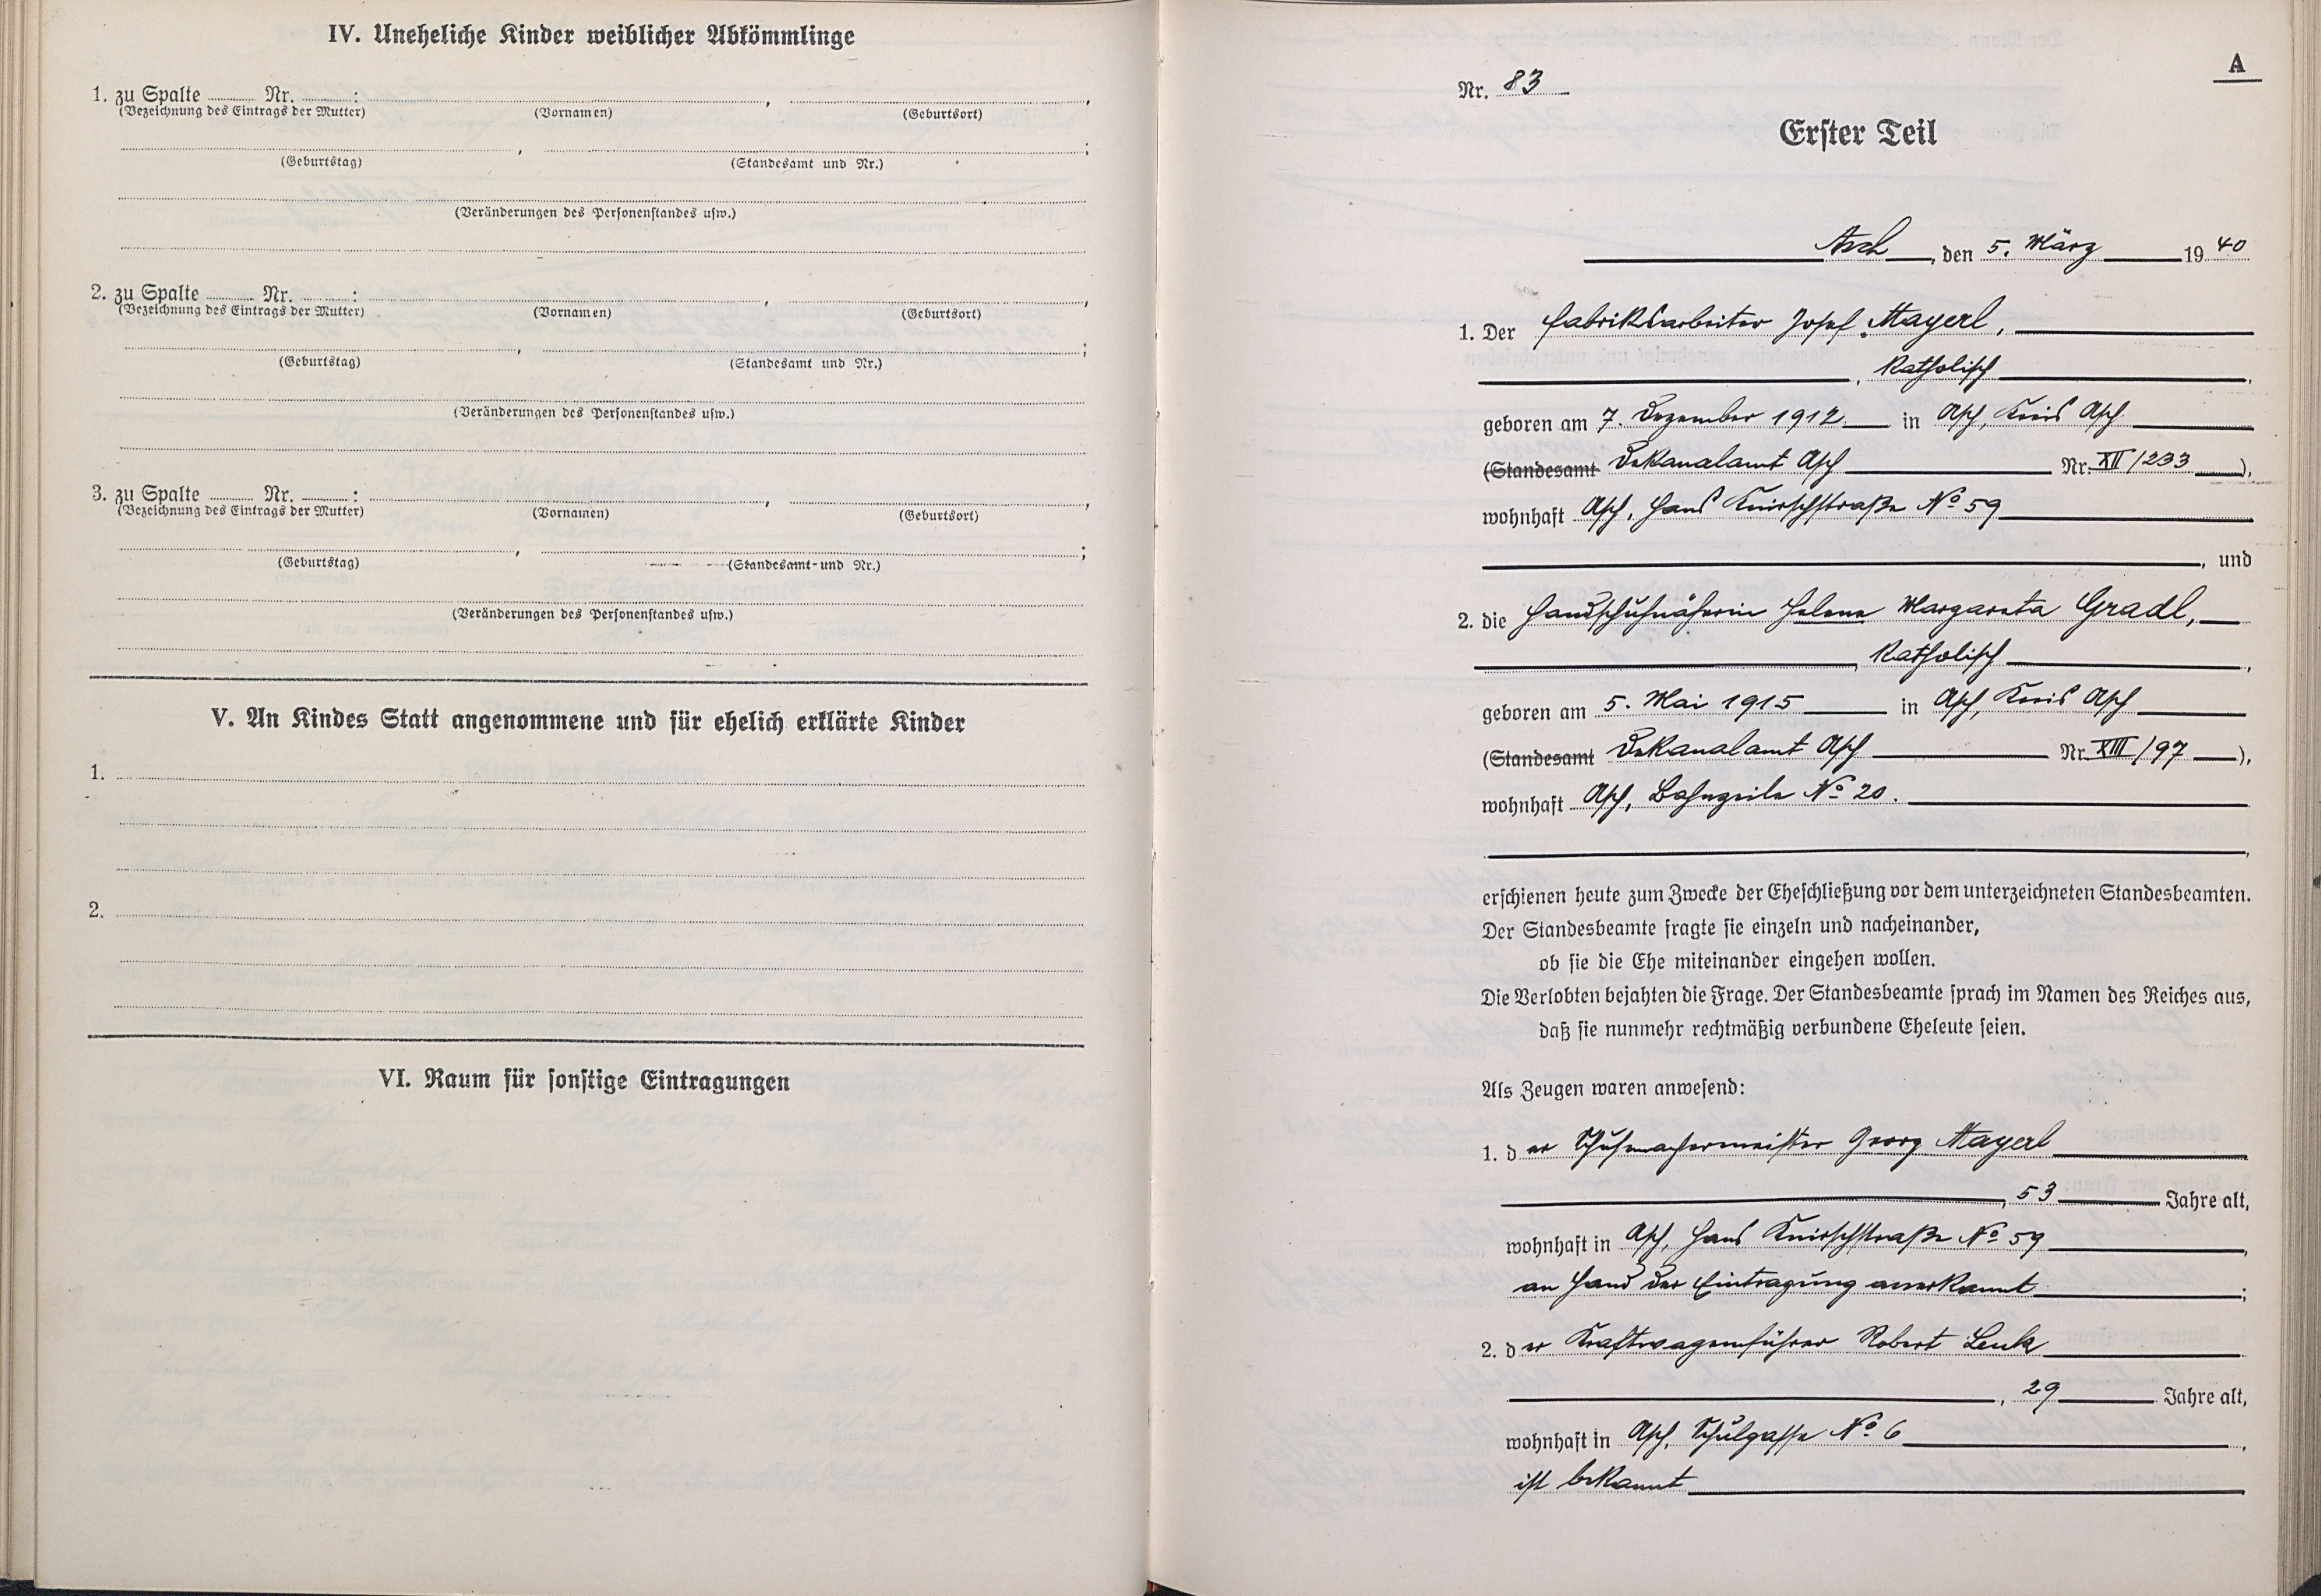 IV. Uneheliche Kinder weiblicher Abkömmlinge
1. zu Spalte Nr. : , ,
(Bezeichnung des Eintrags der Mutter) (Vornamen) (Geburtsort)
, ;
(Geburtstag) (Standesamt und Nr.)
(Veränderungen des Personenstandes usw.)
2. zu Spalte Nr. : , ,
(Bezeichnung des Eintrags der Mutter) (Vornamen) (Geburtsort)
, ;
(Geburtstag) (Standesamt und Nr.)
(Veränderungen des Personenstandes usw.)
3. zu Spalte Nr. : , ,
(Bezeichnung des Eintrags der Mutter) (Vornamen) (Geburtsort)
, ;
(Geburtstag) (Standesamt und Nr.)
(Veränderungen des Personenstandes usw.)
V. An Kindes Statt angenommene und für ehelich erklärte Kinder
1.
2.
VI. Raum für sonstige Eintragungen
A
Nr. 83
Erster Teil
Asch, den 5. März 1940
1. Der Fabriksarbeiter Josef Mayerl,
, katholisch,
geboren am 7. Dezember 1912 in Asch, Kreis Asch
(Standesamt Dekanalamt Asch Nr. XII/233),
wohnhaft Asch, Hans Knirschstraße No 59
, und
2. die Handschuhnäherin Helene Margareta Gradl,
, katholisch,
geboren am 5. Mai 1915 in Asch, Kreis Asch
(Standesamt Dekanalamt Asch Nr. XIII/97),
wohnhaft Asch, Bahnzeile No 20.
,
erschienen heute zum Zwecke der Eheschließung vor dem unterzeichneten Standesbeamten.
Der Standesbeamte fragte sie einzeln und nacheinander,
ob sie die Ehe miteinander eingehen wollen.
Die Verlobten bejahten die Frage. Der Standesbeamte sprach im Namen des Reiches aus,
daß sie nunmehr rechtmäßig verbundene Eheleute seien.
Als Zeugen waren anwesend:
1. der Schuhmachermeister Georg Mayerl
, 53 Jahre alt,
wohnhaft in Asch, Hans Knirschstraße No 59,
an Hand der Eintragung anerkannt;
2. der Kraftwagenführer Robert Lenk
, 29 Jahre alt,
wohnhaft in Asch, Schulgasse No 6,
ist bekannt